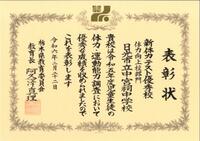 表彰状
新体力テスト優秀校
体力向上校部門
日光市立中宮祠中学校
貴校は令和五年度児童生徒の
体力・運動能力調査において
優秀な成績を収められましたので
これを表彰します
令和六年二月二日
栃木県教育委員会
教育長 阿久澤真理